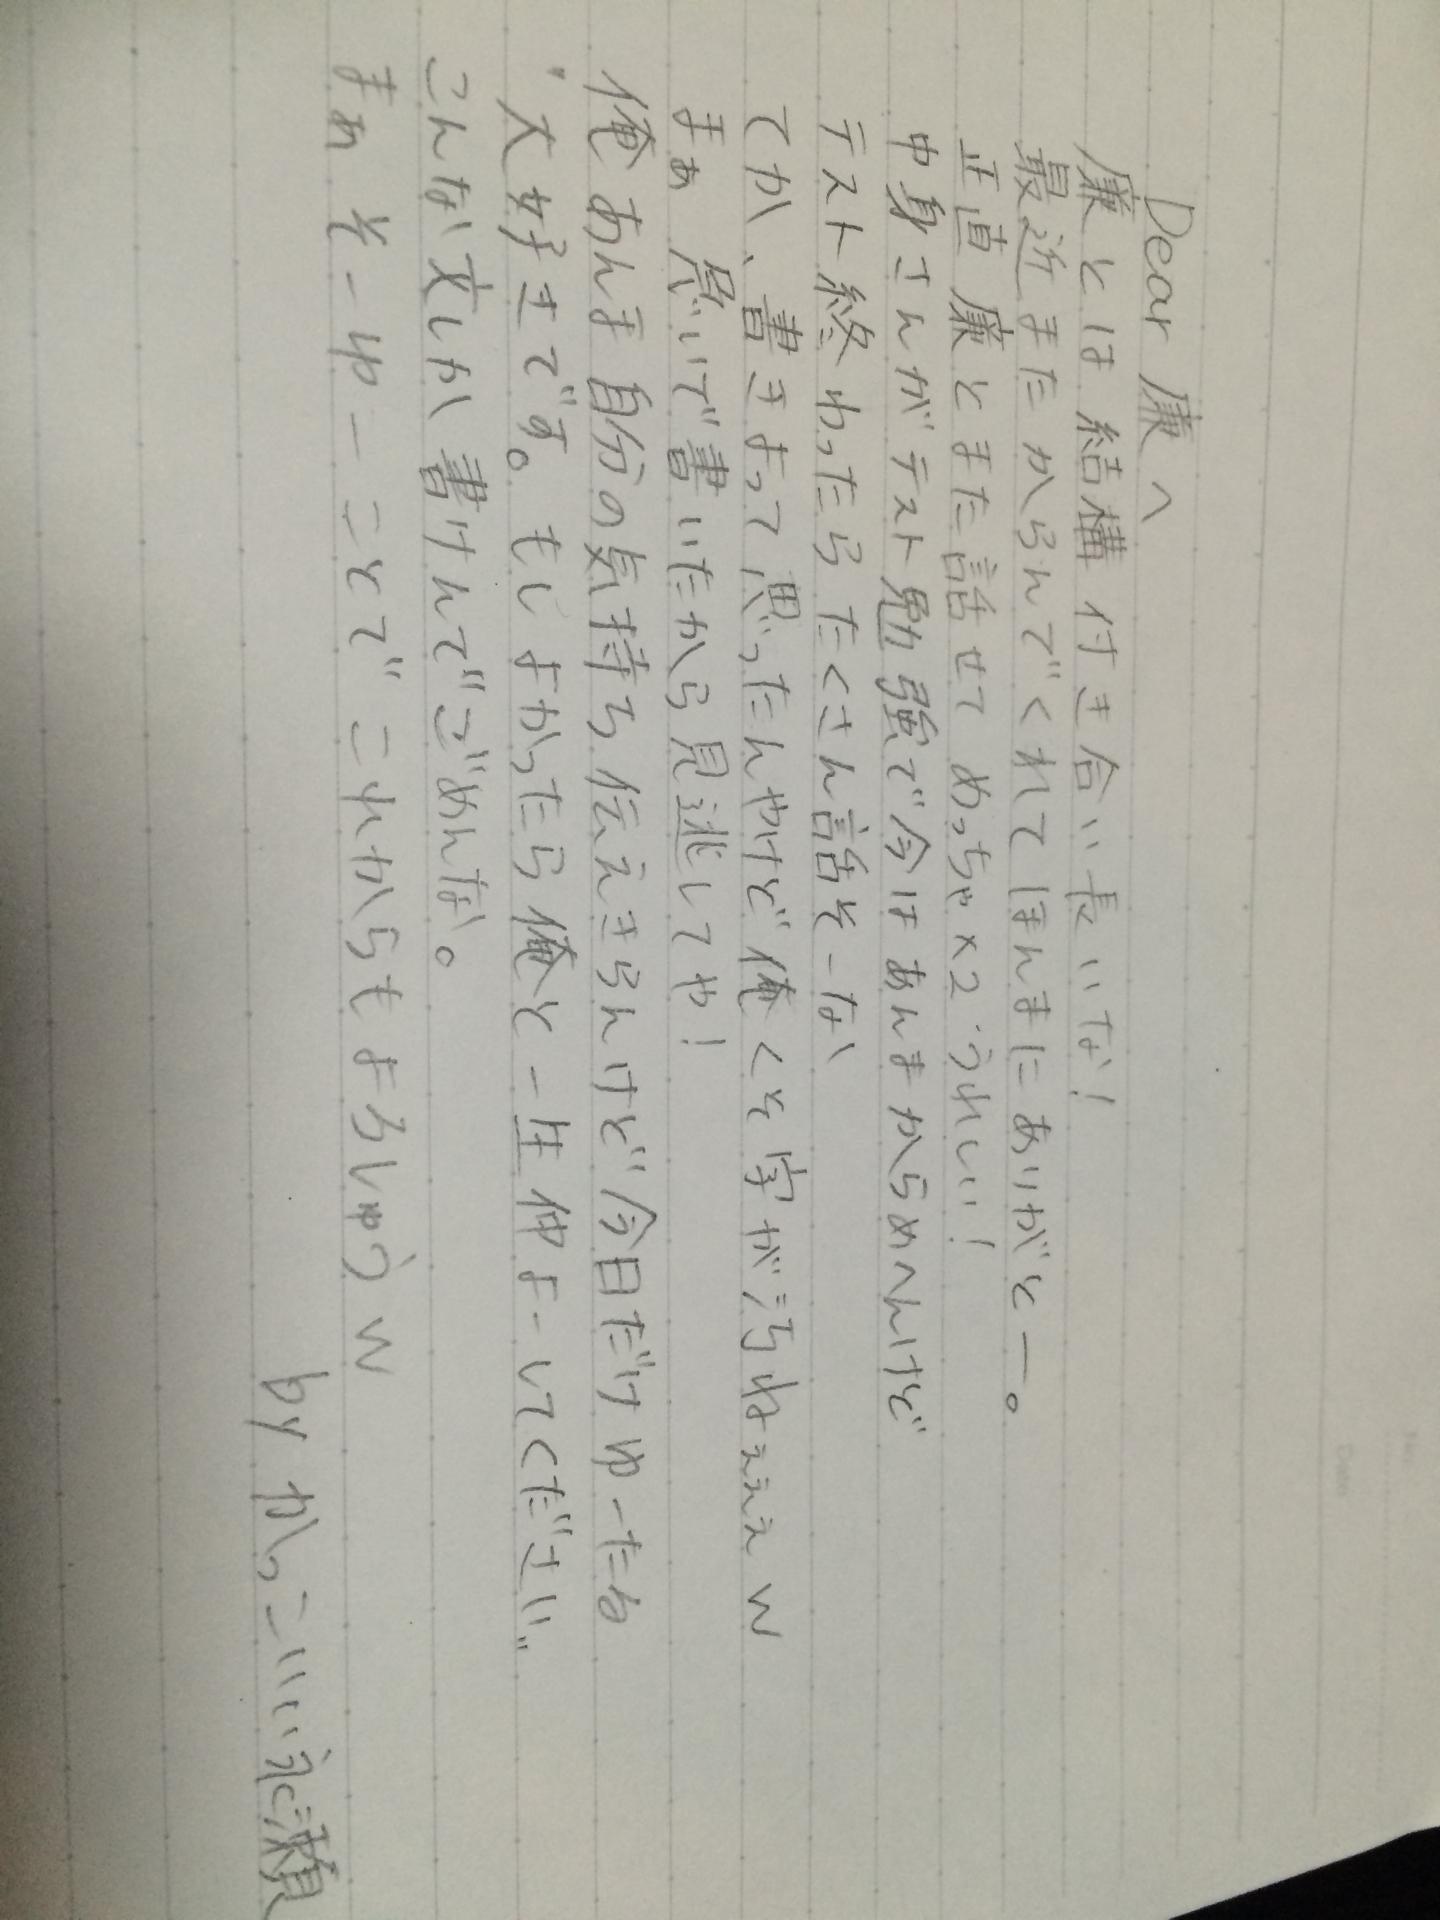 Dear 廉へ
廉とは結構付き合い長いな!
最近またからんでくれてほんまにありがとー。
正直 廉とまた話せて めっちゃ×2うれしい!
中身さんがテスト勉強で今はあんまからめへんけど
テスト終わったらたくさん話そーな
てか、書きよって思ったんやけど俺くそ字が汚ねぇぇぇw
まぁ 急いで書いたから見逃してや!
俺あんま自分の気持ち伝えきらんけど今日だけゆーたる
"大好きです。もしよかったら俺と一生仲よーしてください"
こんな文しか書けんでごめんな。
まぁ そーゆーことで これからもよろしゅうw
by かっこいい永瀬